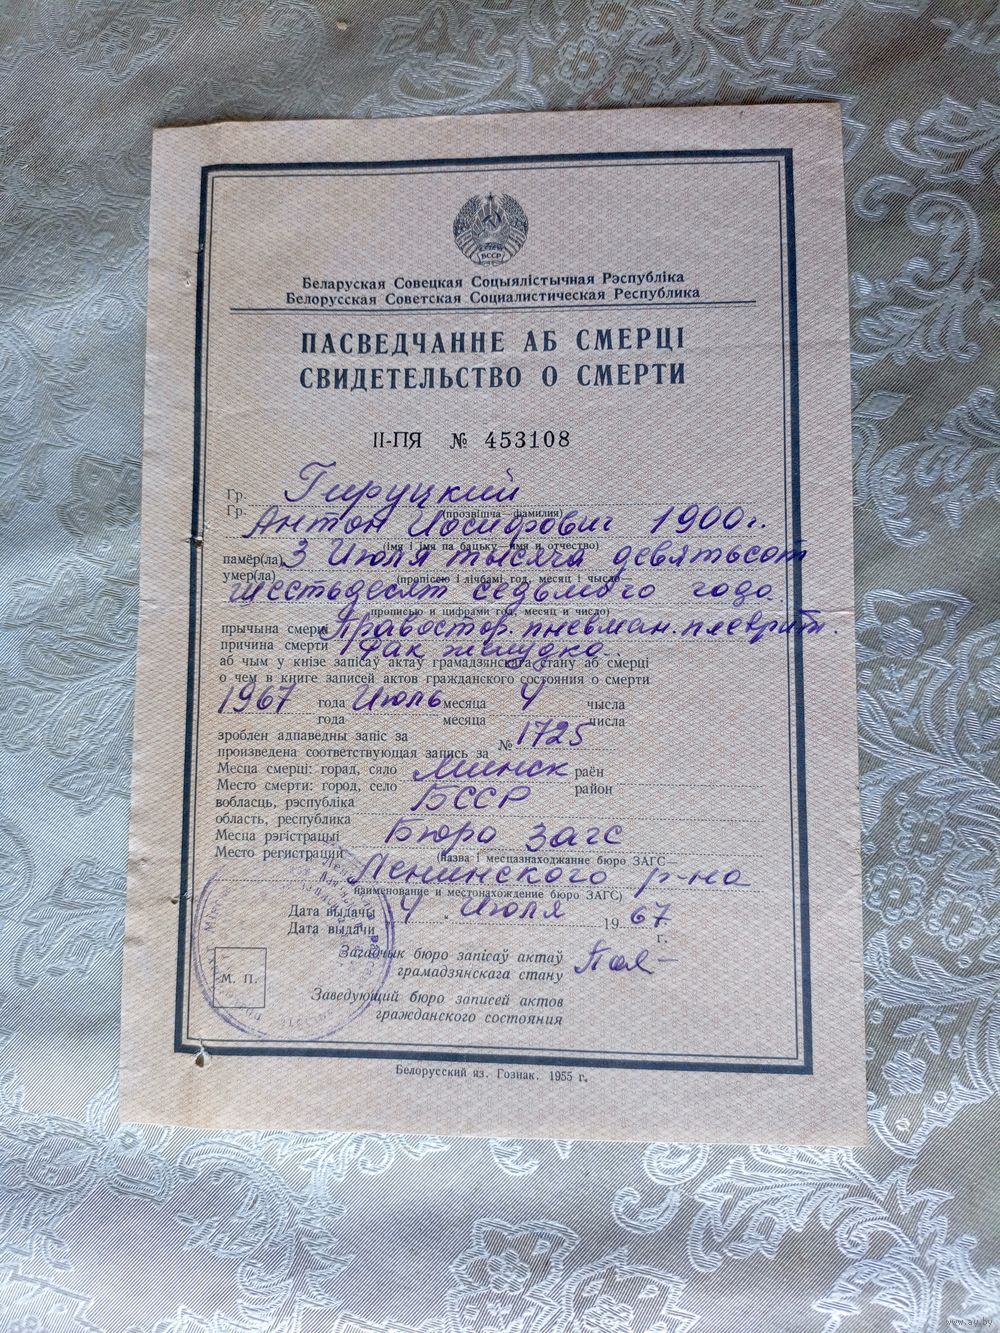 БССР
Беларуская Совецкая Соцыялістычная Рэспубліка
Белорусская Советская Социалистическая Республика
ПАСВЕДЧАННЕ АБ СМЕРЦІ
СВИДЕТЕЛЬСТВО О СМЕРТИ
II-ПЯ № 453108
Гр. Гируцкий
Гр. (прозвішча—фамилия)
Антон Иосифович 1900 г.
(імя і імя па бацьку—имя и отчество)
памёр(ла) 3 Июля тысяча девятьсот
умер(ла) (прописею і лічбамі год, месяц і чысло—
шестьдесят седьмого года
прописью и цифрами год, месяц и число)
прычына смерці Правостор. пневман. плеврит.
причина смерти желудка
аб чым у кнізе запісаў актаў грамадзянскага стану аб смерці
о чем в книге записей актов гражданского состояния о смерти
1967 года Июль месяца 4 чысла
года месяца числа
зроблен адпаведны запіс за
произведена соответствующая запись за № 1725
Месца смерці: горад, сяло Минск раён
Место смерти: город, село район
вобласць, рэспубліка БССР
область, республика
Месца рэгістрацыі Бюро Загс
Место регистрации (назва і месцазнаходжанне бюро ЗАГС—
Ленинского р-на
наименование и местонахождение бюро ЗАГС)
Дата выдачы 4 Июля 1967
Дата выдачи г.
Загадчык бюро запісаў актаў
грамадзянскага стану
М. П.
Заведующий бюро записей актов
гражданского состояния
Белорусский яз. Гознак. 1955 г.
www.ay.by